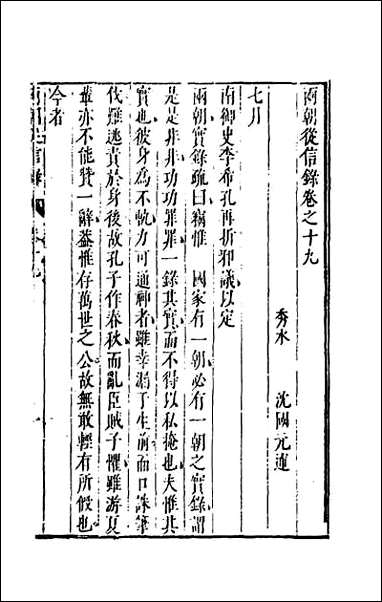 兩朝從信錄卷之十九
秀水 沈國元述
七月
南御史李希孔再折邪議以定
兩朝實錄疏曰竊惟 國家有一朝必有一朝之實錄謂
是是非非功功罪罪一錄其實而不得以私掩也夫惟其
實也彼身為不軌力可通神者雖幸漏于生前而口誅筆
伐難逃責於身後故孔子作春秋而亂臣賊子懼雖游夏
輩亦不能贊一辭蓋惟存萬世之公故無敢輕有所假也
今者